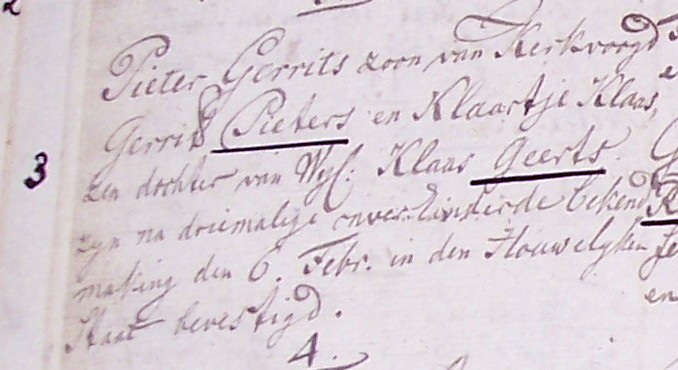 Pieter Gerrits zoon van Kerkvoogd
Gerrit Pieters en Klaartje Klaas,
3
zen dochter van Wyl: Klaas Geerts.
zyn na driemalige onverhinderde bekend
making den 6. Febr. in den Houwelyken
Staat bevestigd.
en
4.